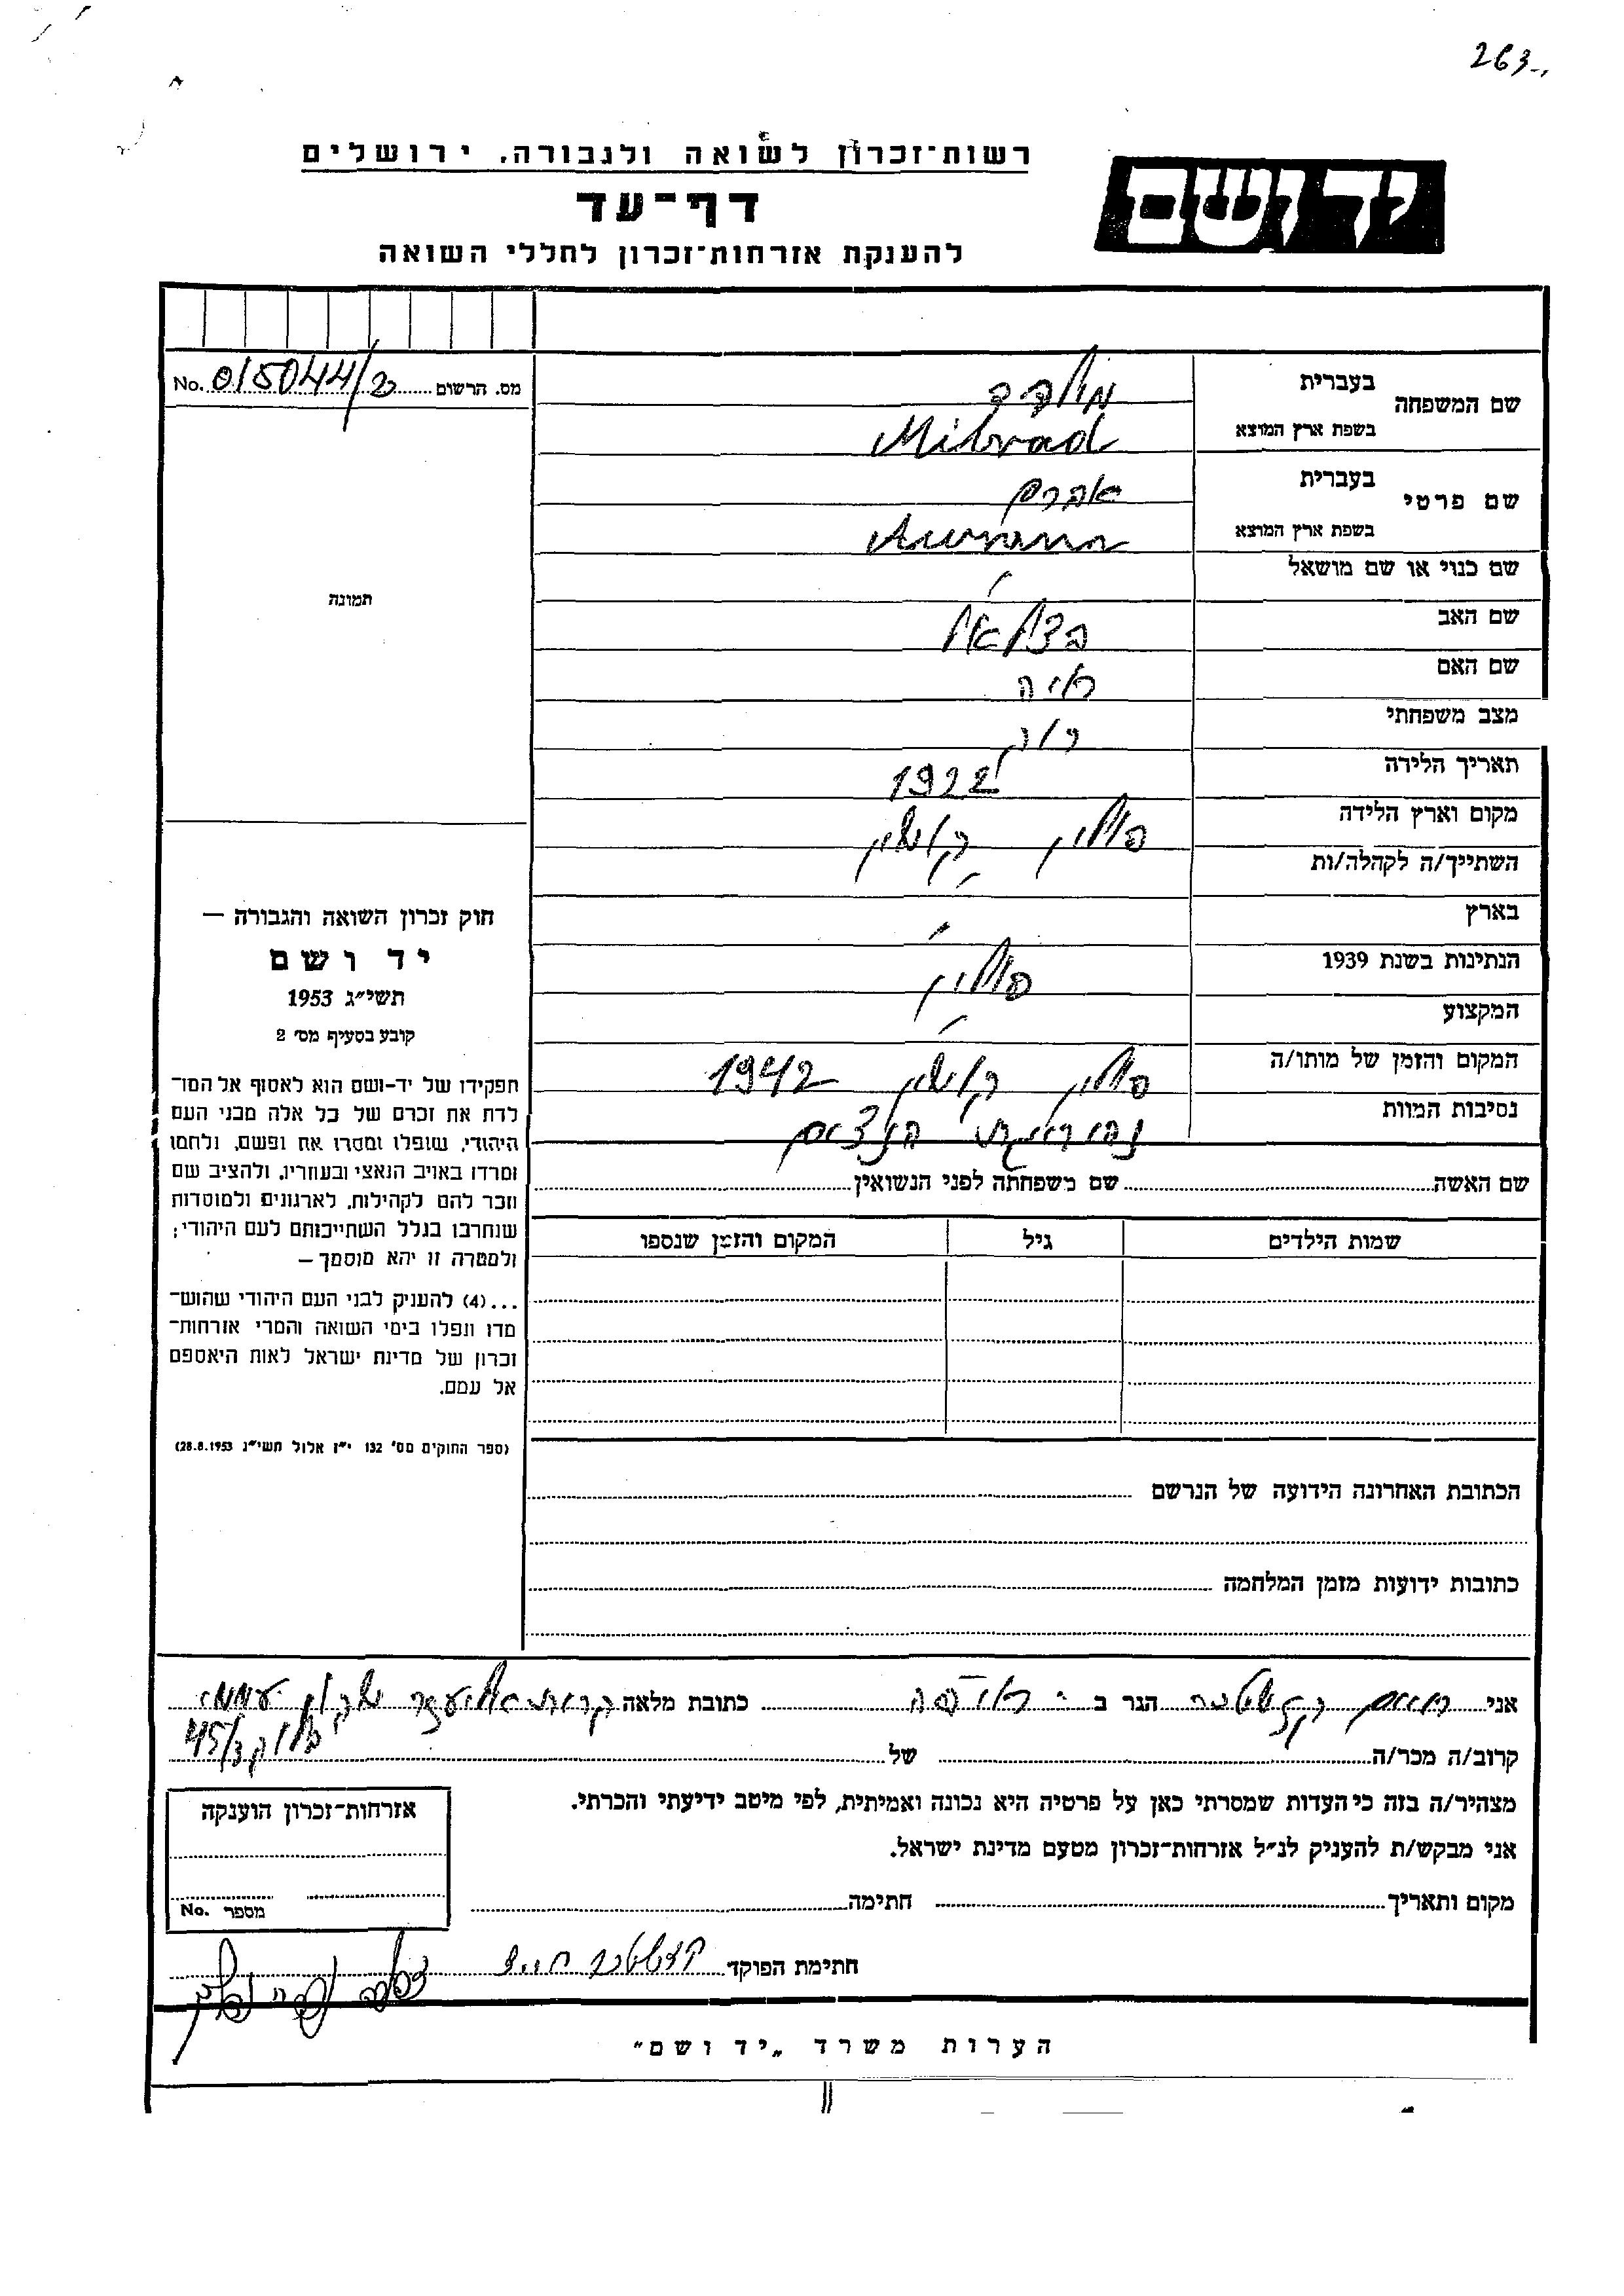 263
רשות-זכרון לשואה ולגבורה, ירושלים
יד ושם
דף-עד
להענקת אזרחות-זכרון לחללי השואה
מס. הרשום 015044/ No.
שם המשפחה
בעברית
בשפת ארץ המוצא Milvrad
שם פרטי
בעברית אברם
בשפת ארץ המוצא
שם כנוי או שם מושאל
שם האב בצלאל
שם האם
מצב משפחתי
תאריך הלידה 1922
מקום וארץ הלידה פולין
השתייך/ה לקהלה/ות
בארץ
הנתינות בשנת 1939 פולין
המקצוע
המקום והזמן של מותו/ה פולין 1942
נסיבות המוות
שם האשה שם משפחתה לפני הנשואין
שמות הילדים גיל המקום והזמן שנספו
הכתובת האחרונה הידועה של הנרשם
כתובות ידועות מזמן המלחמה
תמונה
חוק זכרון השואה והגבורה —
יד ושם
תשי״ג 1953
קובע בסעיף מס׳ 2
תפקידו של יד-ושם הוא לאסוף אל המו־
לדת את זכרם של כל אלה מבני העם
היהודי, שנפלו ומסרו את נפשם, נלחמו
ומרדו באויב הנאצי ובעוזריו, ולהציב שם
וזכר להם לקהילות, לארגונים ולמוסדות
שנחרבו בגלל השתייכותם לעם היהודי;
ולמטרה זו יהא מוסמך —
...(4) להעניק לבני העם היהודי שהוש־
מדו ונפלו בימי השואה והמרי אזרחות-
זכרון של מדינת ישראל לאות היאספם
אל עמם.
(ספר החוקים מס׳ 132 י״ז אלול תשי״ג 28.8.1953)
אני הגר ב כתובת מלאה קרית אליעזר שכון עממי
בלוק 45/3
קרוב/ה מכר/ה של
מצהיר/ה בזה כי העדות שמסרתי כאן על פרטיה היא נכונה ואמיתית, לפי מיטב ידיעתי והכרתי.
אני מבקש/ת להעניק לנ״ל אזרחות-זכרון מטעם מדינת ישראל.
מקום ותאריך חתימה
אזרחות-זכרון הוענקה
מספר No.
חתימת הפוקד
הערות משרד „יד ושם״